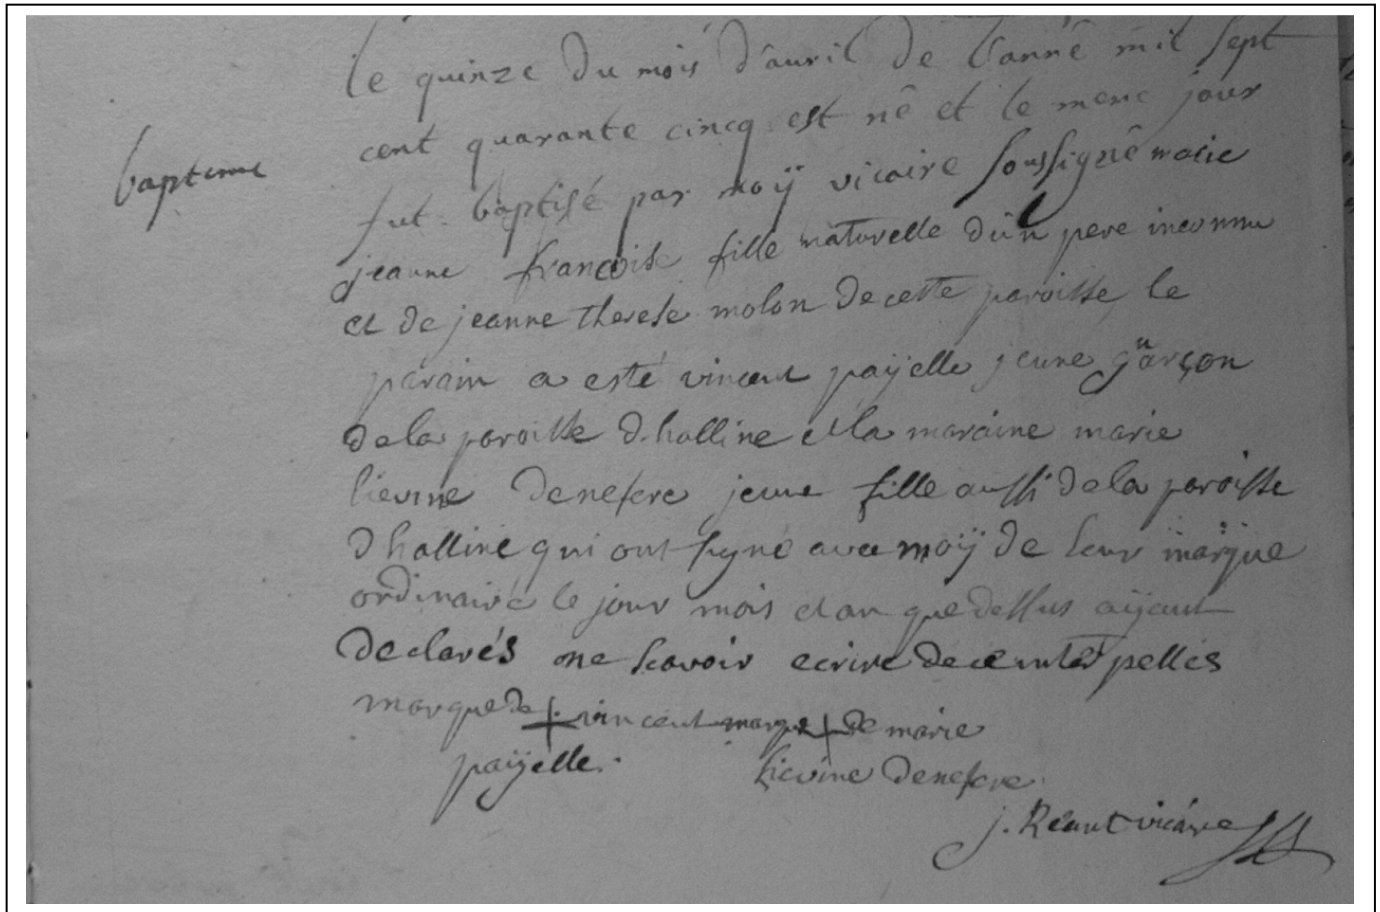 le quinze du mois d'auril de l'annê mil sept
cent quarante cincq est nê et le meme jour
bapteme
fut baptisé par moÿ vicaire soussignê marie
jeanne francoise fille naturelle d'un pere inconnu
et de jeanne therese molon de cette paroisse, le
parain a esté vincent paÿelle jeune garçon
de la paroisse d'halline et la maraine marie
lievine denefcre jeune fille aussi de la paroisse
d'halline qui ont signé avec moÿ de leur marque
ordinaire le jour mois et an que dessus aÿant
declarés ne scavoir ecrire de ce interpellés
marque de + vincent marque + de marie
paÿelle. lievine denefcre
j. vicaire